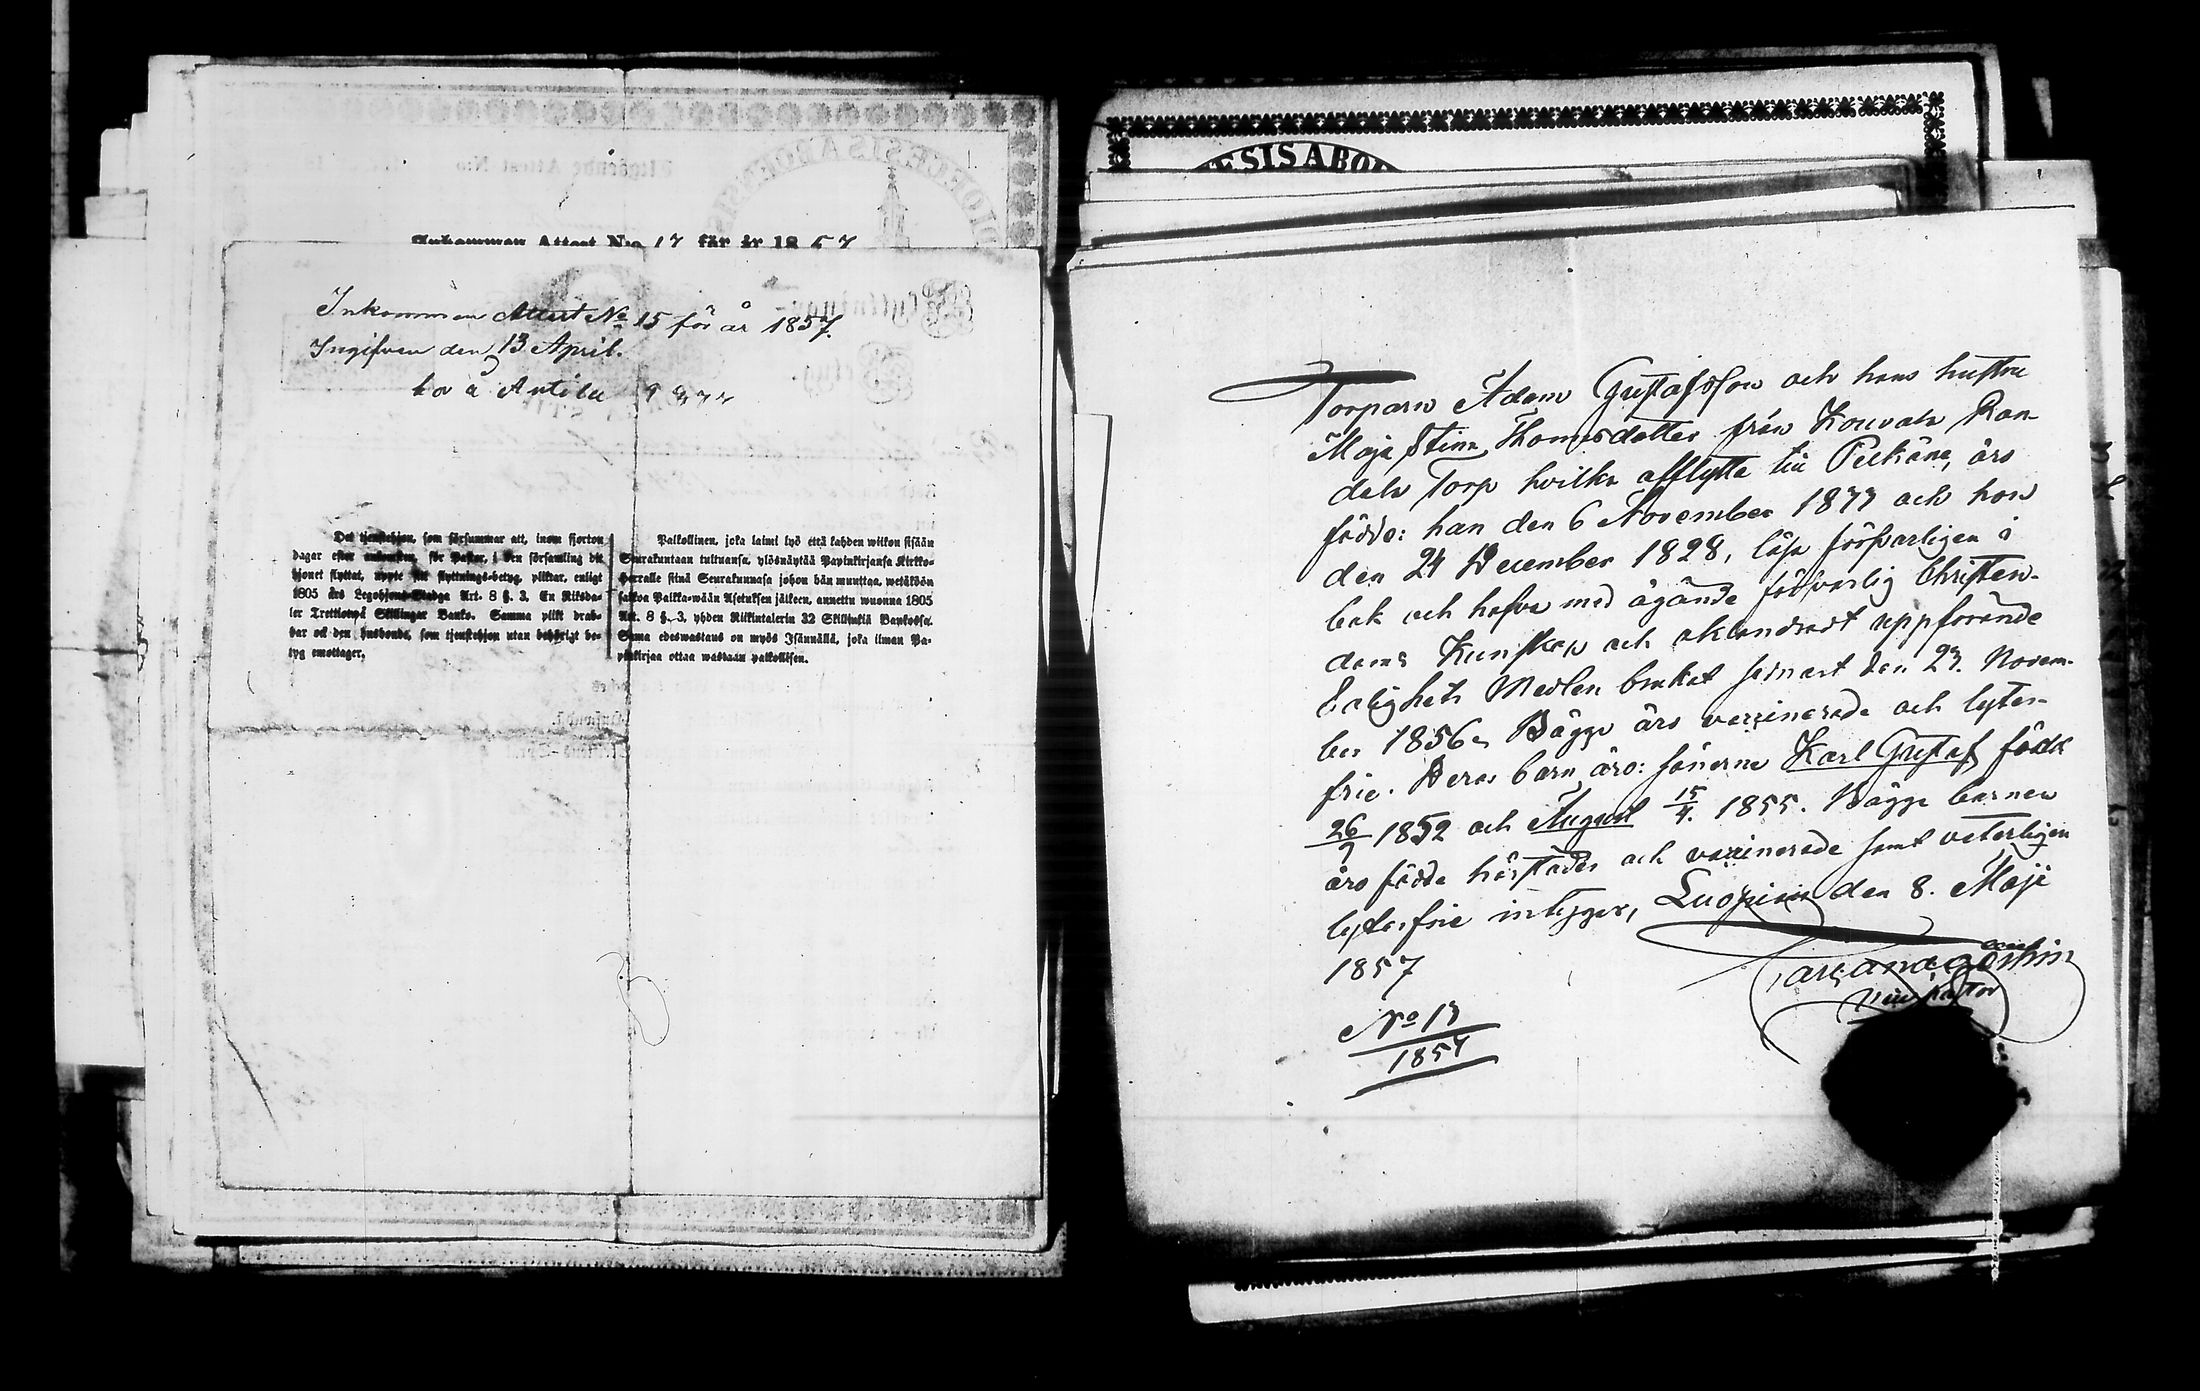 Inkommen Attest N:o 17 för år 1857
Inkommen Attest No 15 för år 1857.
Ingifven den 13 April.
bo å Antila
Det tjenstehjon, som försummar att, inom fjorton
dagar efter ankomsten, för Pastor, i den församling dit
hjonet flyttat, uppte sitt flyttnings-betyg, pliktar, enligt
1805 års Legohjons-Stadga Art. 8 §. 3. En Riksda-
ler Trettiotvå Skillingar Banko. Samma plikt drab-
bar ock den husbonde, som tjenstehjon utan behörigt be-
tyg emottager.
Palkollinen, joka laimi lyö että kahden wiikon sisään
Seurakuntaan tultuansa, ylösnäytää Papinkirjansa Kirkko-
Herralle siinä Seurakunnasa johon hän muuttaa, wetäköön
sakkoa Palkka-wään Asetuksen jälkeen, annettu wuonna 1805
Art. 8 §. 3, yhden Riikintalerin 32 Skillinkiä Bankossa.
Sama edeswastaus on myös Isännällä, joka ilman Pa-
pinkirjaa ottaa wastaan palkollisen.
ESIS ABO
Torparn Adam Gustafsson och hans hustru
Maja Stina Thomasdotter från Kouvala Ran-
dala Torp hvilka afflytta till Pelkäne, äro
födde: han den 6 November 1877 och hon
den 24 December 1828, läsa försvarligen i
bok och hafva med ägande försvarlig Christen-
doms Kunskap och oklandradt uppförande
Salighets Medlen brukat sednast den 23. Novem-
ber 1856. Bägge äro vaccinerade och lytes-
frie. Deras barn äro: sönerne Karl Gustaf född
26/9 1852 och August 15/4. 1855. Bägge barnen
äro födde härstädes och vaccinerade samt veterligen
lytesfrie intygger, Luopiois den 8. Maji
1857
No 13
1857